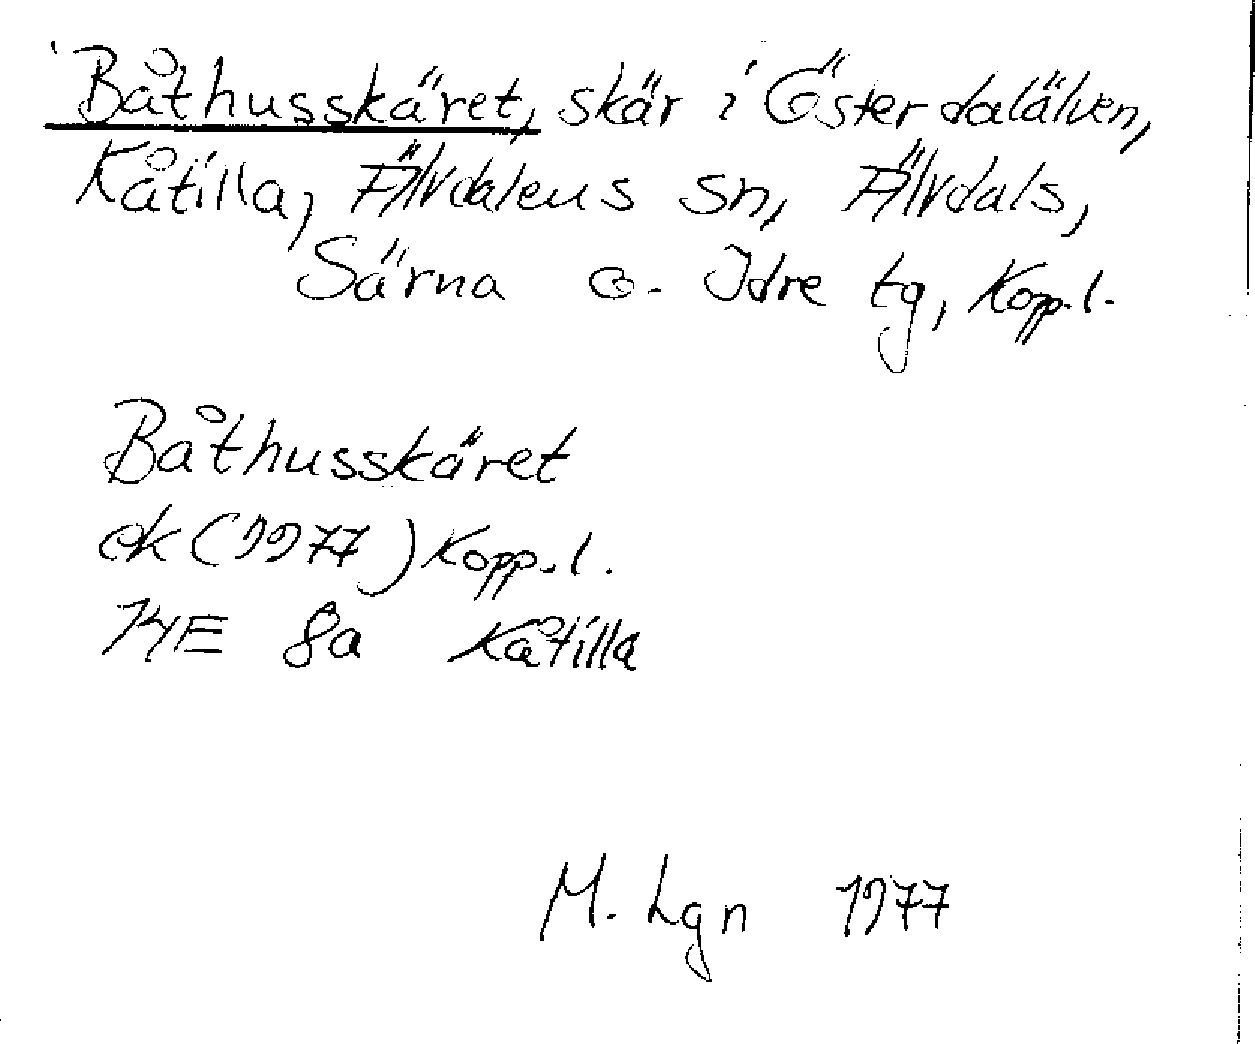 Båthusskäret, skär i Österdalälven,
Kåtilla, Älvdalens sn, Älvdals,
Särna o. Idre tg, Kopp.l.
Båthusskäret
ek (1977) Kopp.l.
14E 8a Kåtilla
M. Lgn 1977